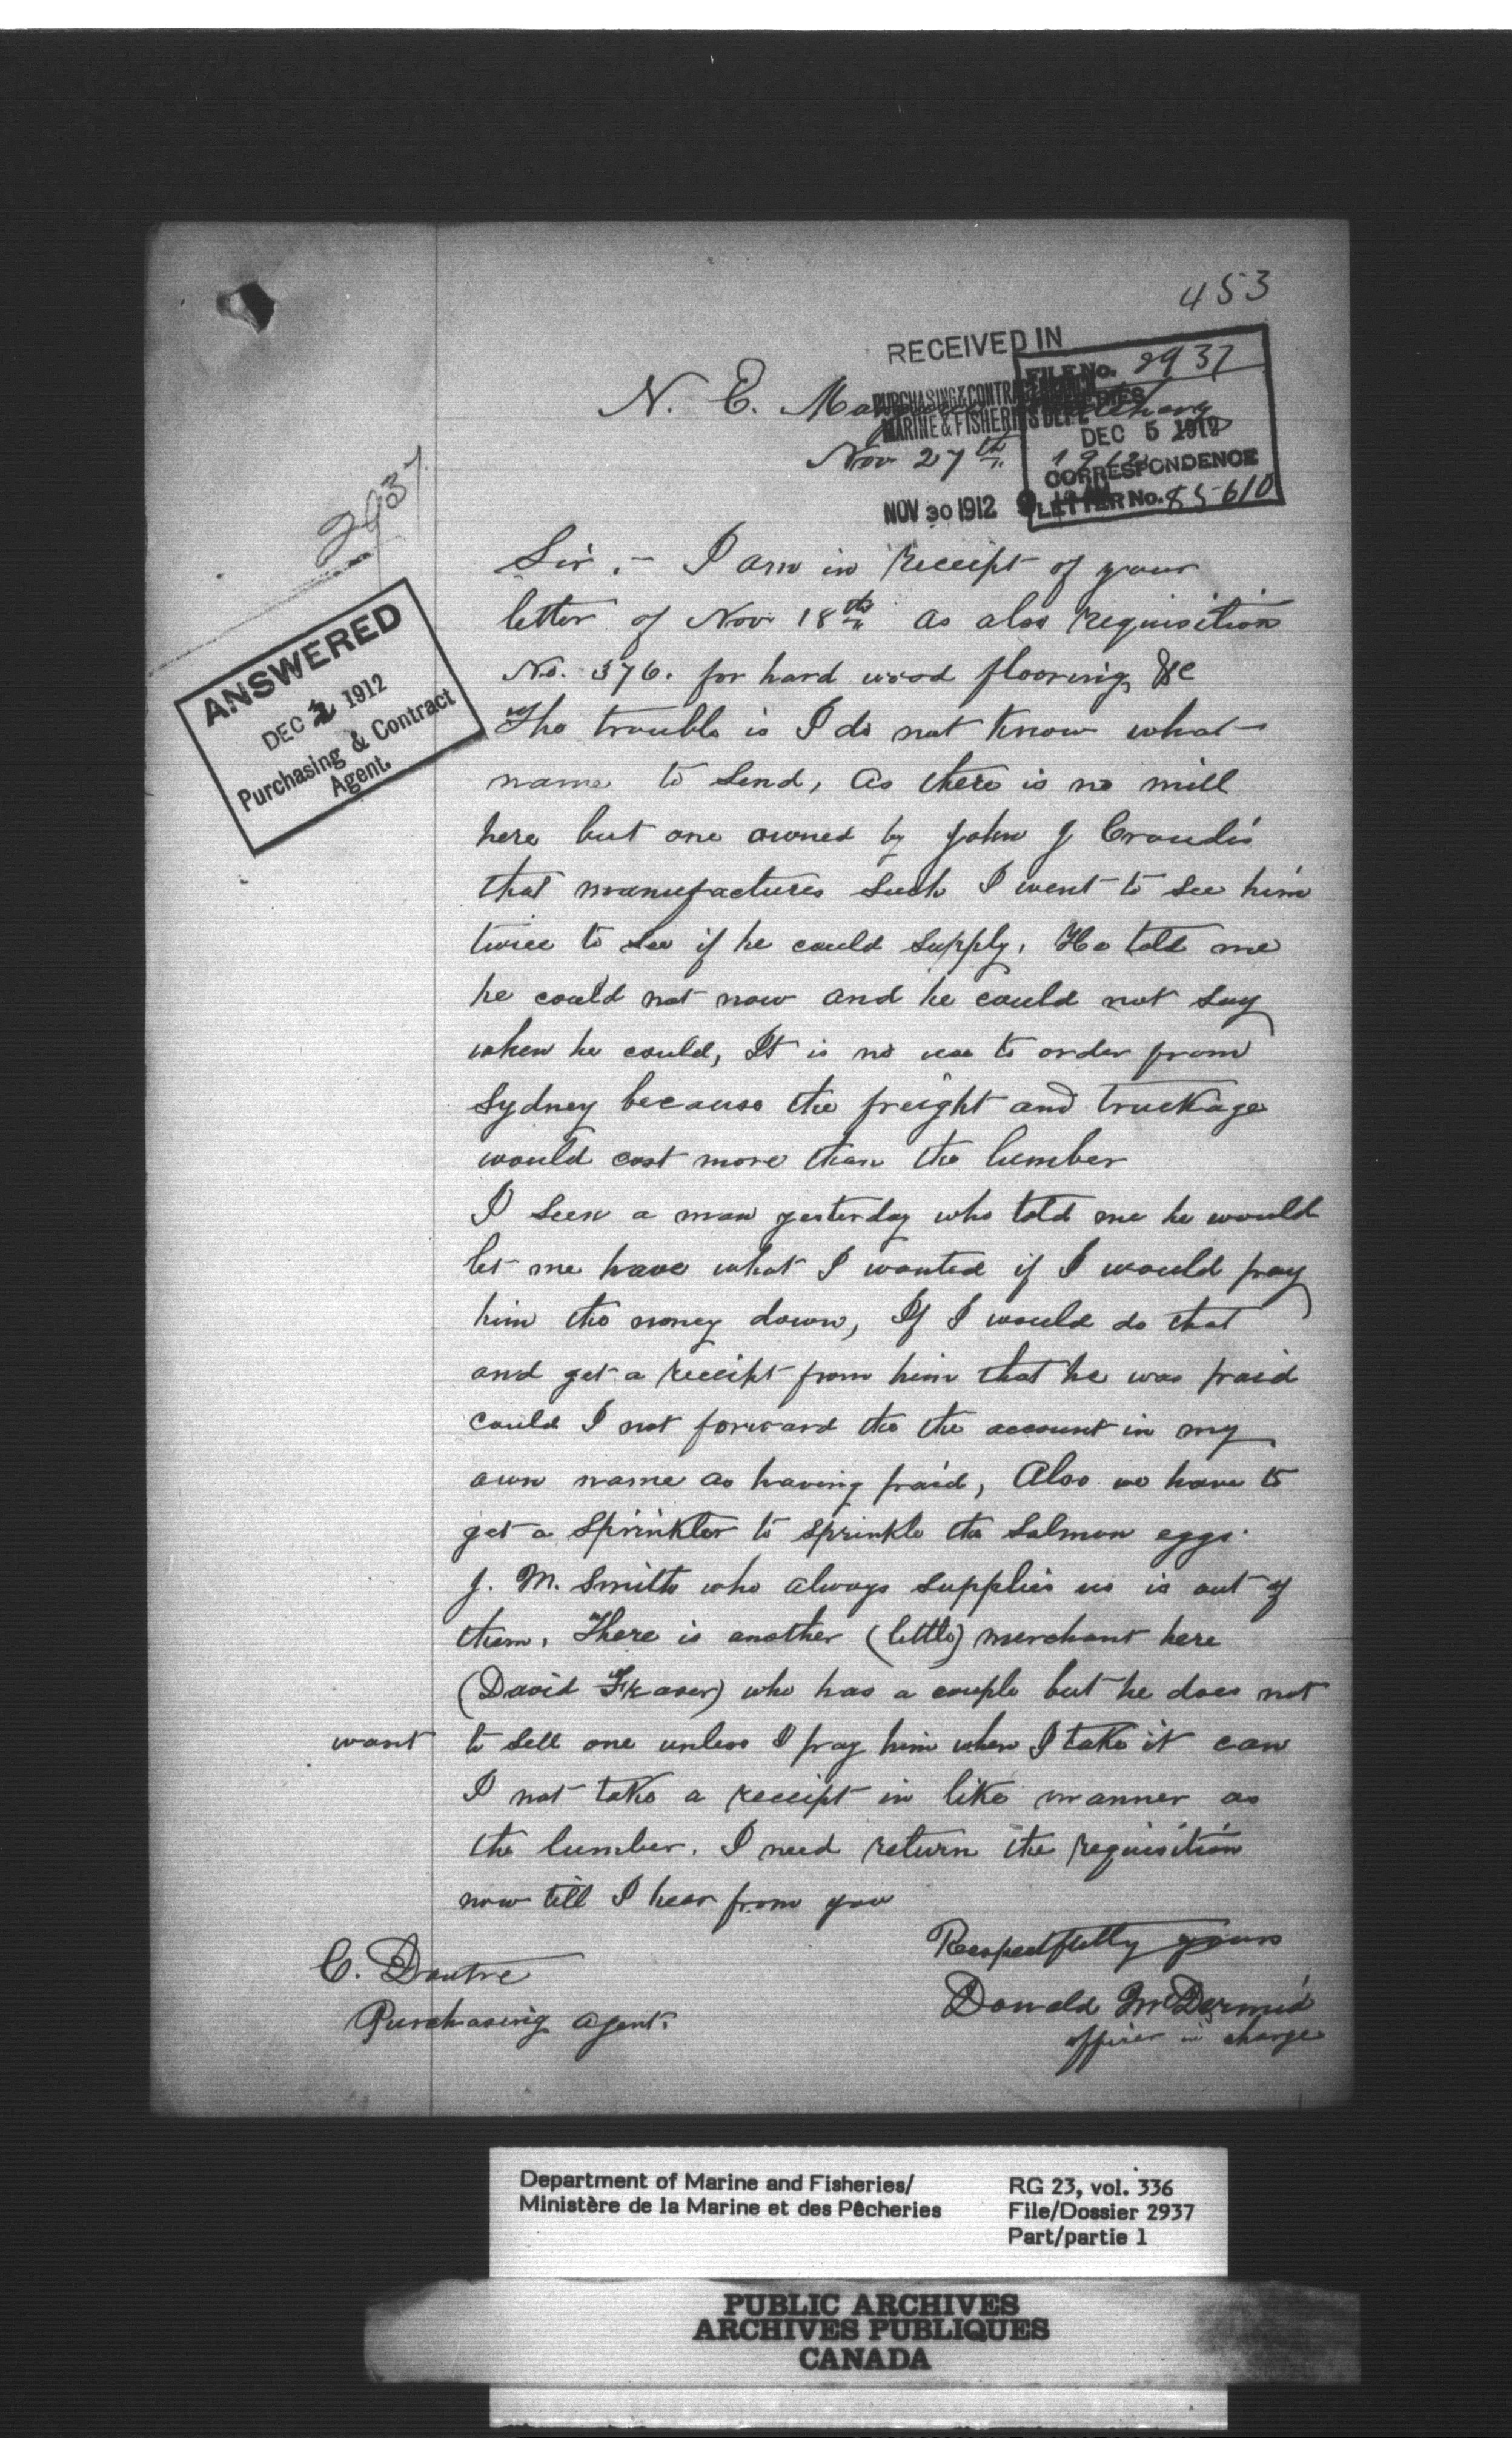 453
RECEIVED IN
FILE No. 2937
PURCHASING & CONTRACT
MARINE & FISHERIES DEPT
N. E. Hatchery
DEC 5 1912
Nov 27th 1912
CORRESPONDENCE
NOV 30 1912
LETTER No. 85610
2937
Sir. - I am in receipt of your
letter of Nov 18th as also requisition
No. 376. for hard wood flooring, &c
ANSWERED
DEC 2 1912
Purchasing & Contract
Agent.
The trouble is I do not know what
name to send, as there is no mill
here but one owned by John J Croudis
that manufactures such I went to see him
twice to see if he could supply, He told me
he could not now and he could not say
when he could, It is no use to order from
Sydney because the freight and truckage
would cost more than the lumber
I seen a man yesterday who told me he would
let me have what I wanted if I would pay
him the money down, If I would do that
and get a receipt from him that he was paid
could I not forward the the account in my
own name as having paid, Also we have to
get a sprinkler to sprinkle the salmon eggs.
J. M. Smith who always supplies us is out of
them, There is another (little) merchant here
(David Fraser) who has a couple but he does not
want to sell one unless I pay him when I take it can
I not take a receipt in like manner as
the lumber. I need return the requisition
now till I hear from you
Respectfully yours
Donald McDermid
officer in charge
C. Doutre
Purchasing Agent.
Department of Marine and Fisheries/
Ministère de la Marine et des Pêcheries
RG 23, vol. 336
File/Dossier 2937
Part/partie 1
PUBLIC ARCHIVES
ARCHIVES PUBLIQUES
CANADA